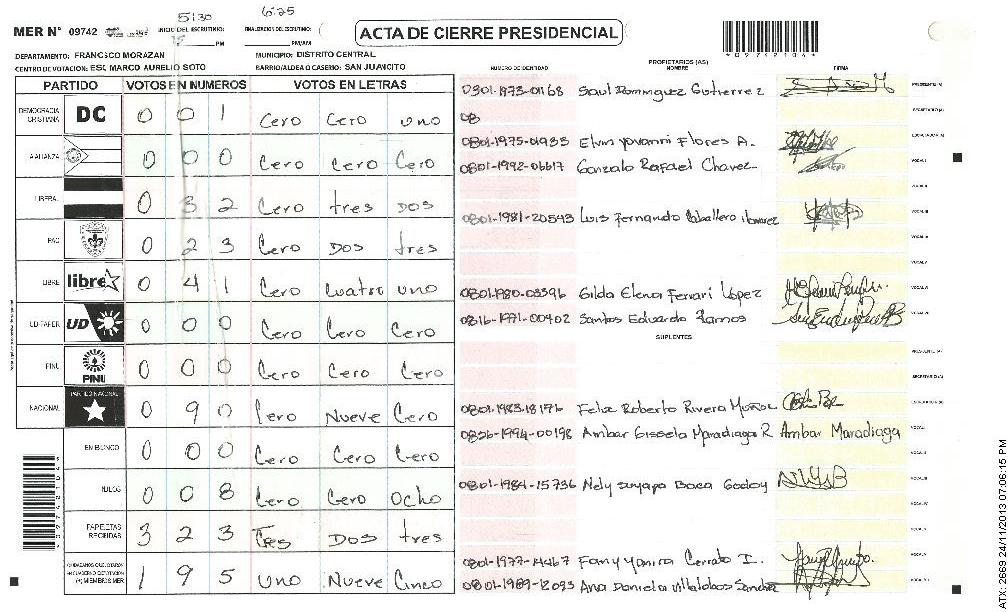 5:30 6:25
MER N° 09742 INICIO DEL ESCRUTINIO: PM FINALIZACION DEL ESCRUTINIO: PM/AM ACTA DE CIERRE PRESIDENCIAL
DEPARTAMENTO: FRANCISCO MORAZAN MUNICIPIO: DISTRITO CENTRAL
CENTRO DE VOTACION: ESC MARCO AURELIO SOTO BARRIO/ALDEA O CASERIO: SAN JUANCITO
PARTIDO VOTOS EN NUMEROS VOTOS EN LETRAS
DEMOCRACIA CRISTIANA DC 0 0 1 Cero Cero uno
ALIANZA 0 0 0 Cero Cero Cero
LIBERAL 0 3 2 Cero tres DOS
PAC 0 2 3 Cero DOS tres
LIBRE libre 0 4 1 Cero Cuatro uno
UD-FAPER UD 0 0 0 Cero Cero Cero
PINU PINU 0 0 0 Cero Cero Cero
NACIONAL PARTIDO NACIONAL 0 9 0 Cero Nueve Cero
EN BLANCO 0 0 0 Cero Cero Cero
NULOS 0 0 8 Cero Cero Ocho
PAPELETAS RECIBIDAS 3 2 3 Tres DOS tres
1 9 5 uno Nueve Cinco
NUMERO DE IDENTIDAD PROPIETARIOS (AS) NOMBRE FIRMA
0801-1973-01168 Saul Dominguez Gutierrez PRESIDENTE (A)
SECRETARIO (A)
08
0801-1975-01933 Elvin yovanni Flores A. ESCRUTADOR (A)
0801-1992-06617 Gonzalo Rafael Chavez VOCAL I
0801-1981-20543 Luis Fernando Caballero VOCAL III
0801-1980-03396 Gilda Elena Ferrari López
0816-1971-00402 Santos Eduardo Ramos
SUPLENTES
PRESIDENTE (A)
SECRETARIO (A)
0801-1983-18176 Felix Roberto Rivera Muñoz ESCRUTADOR (A)
0826-1994-00198 Ambar Gissela Maradiaga R Ambar Maradiaga
0801-1984-15736 Nely suyapa Baca Godoy
Fany Yanira Cerrato I.
Ana Daniela Villalobos Sanchez
ATX-2669 24/11/2013 07:06:15 PM